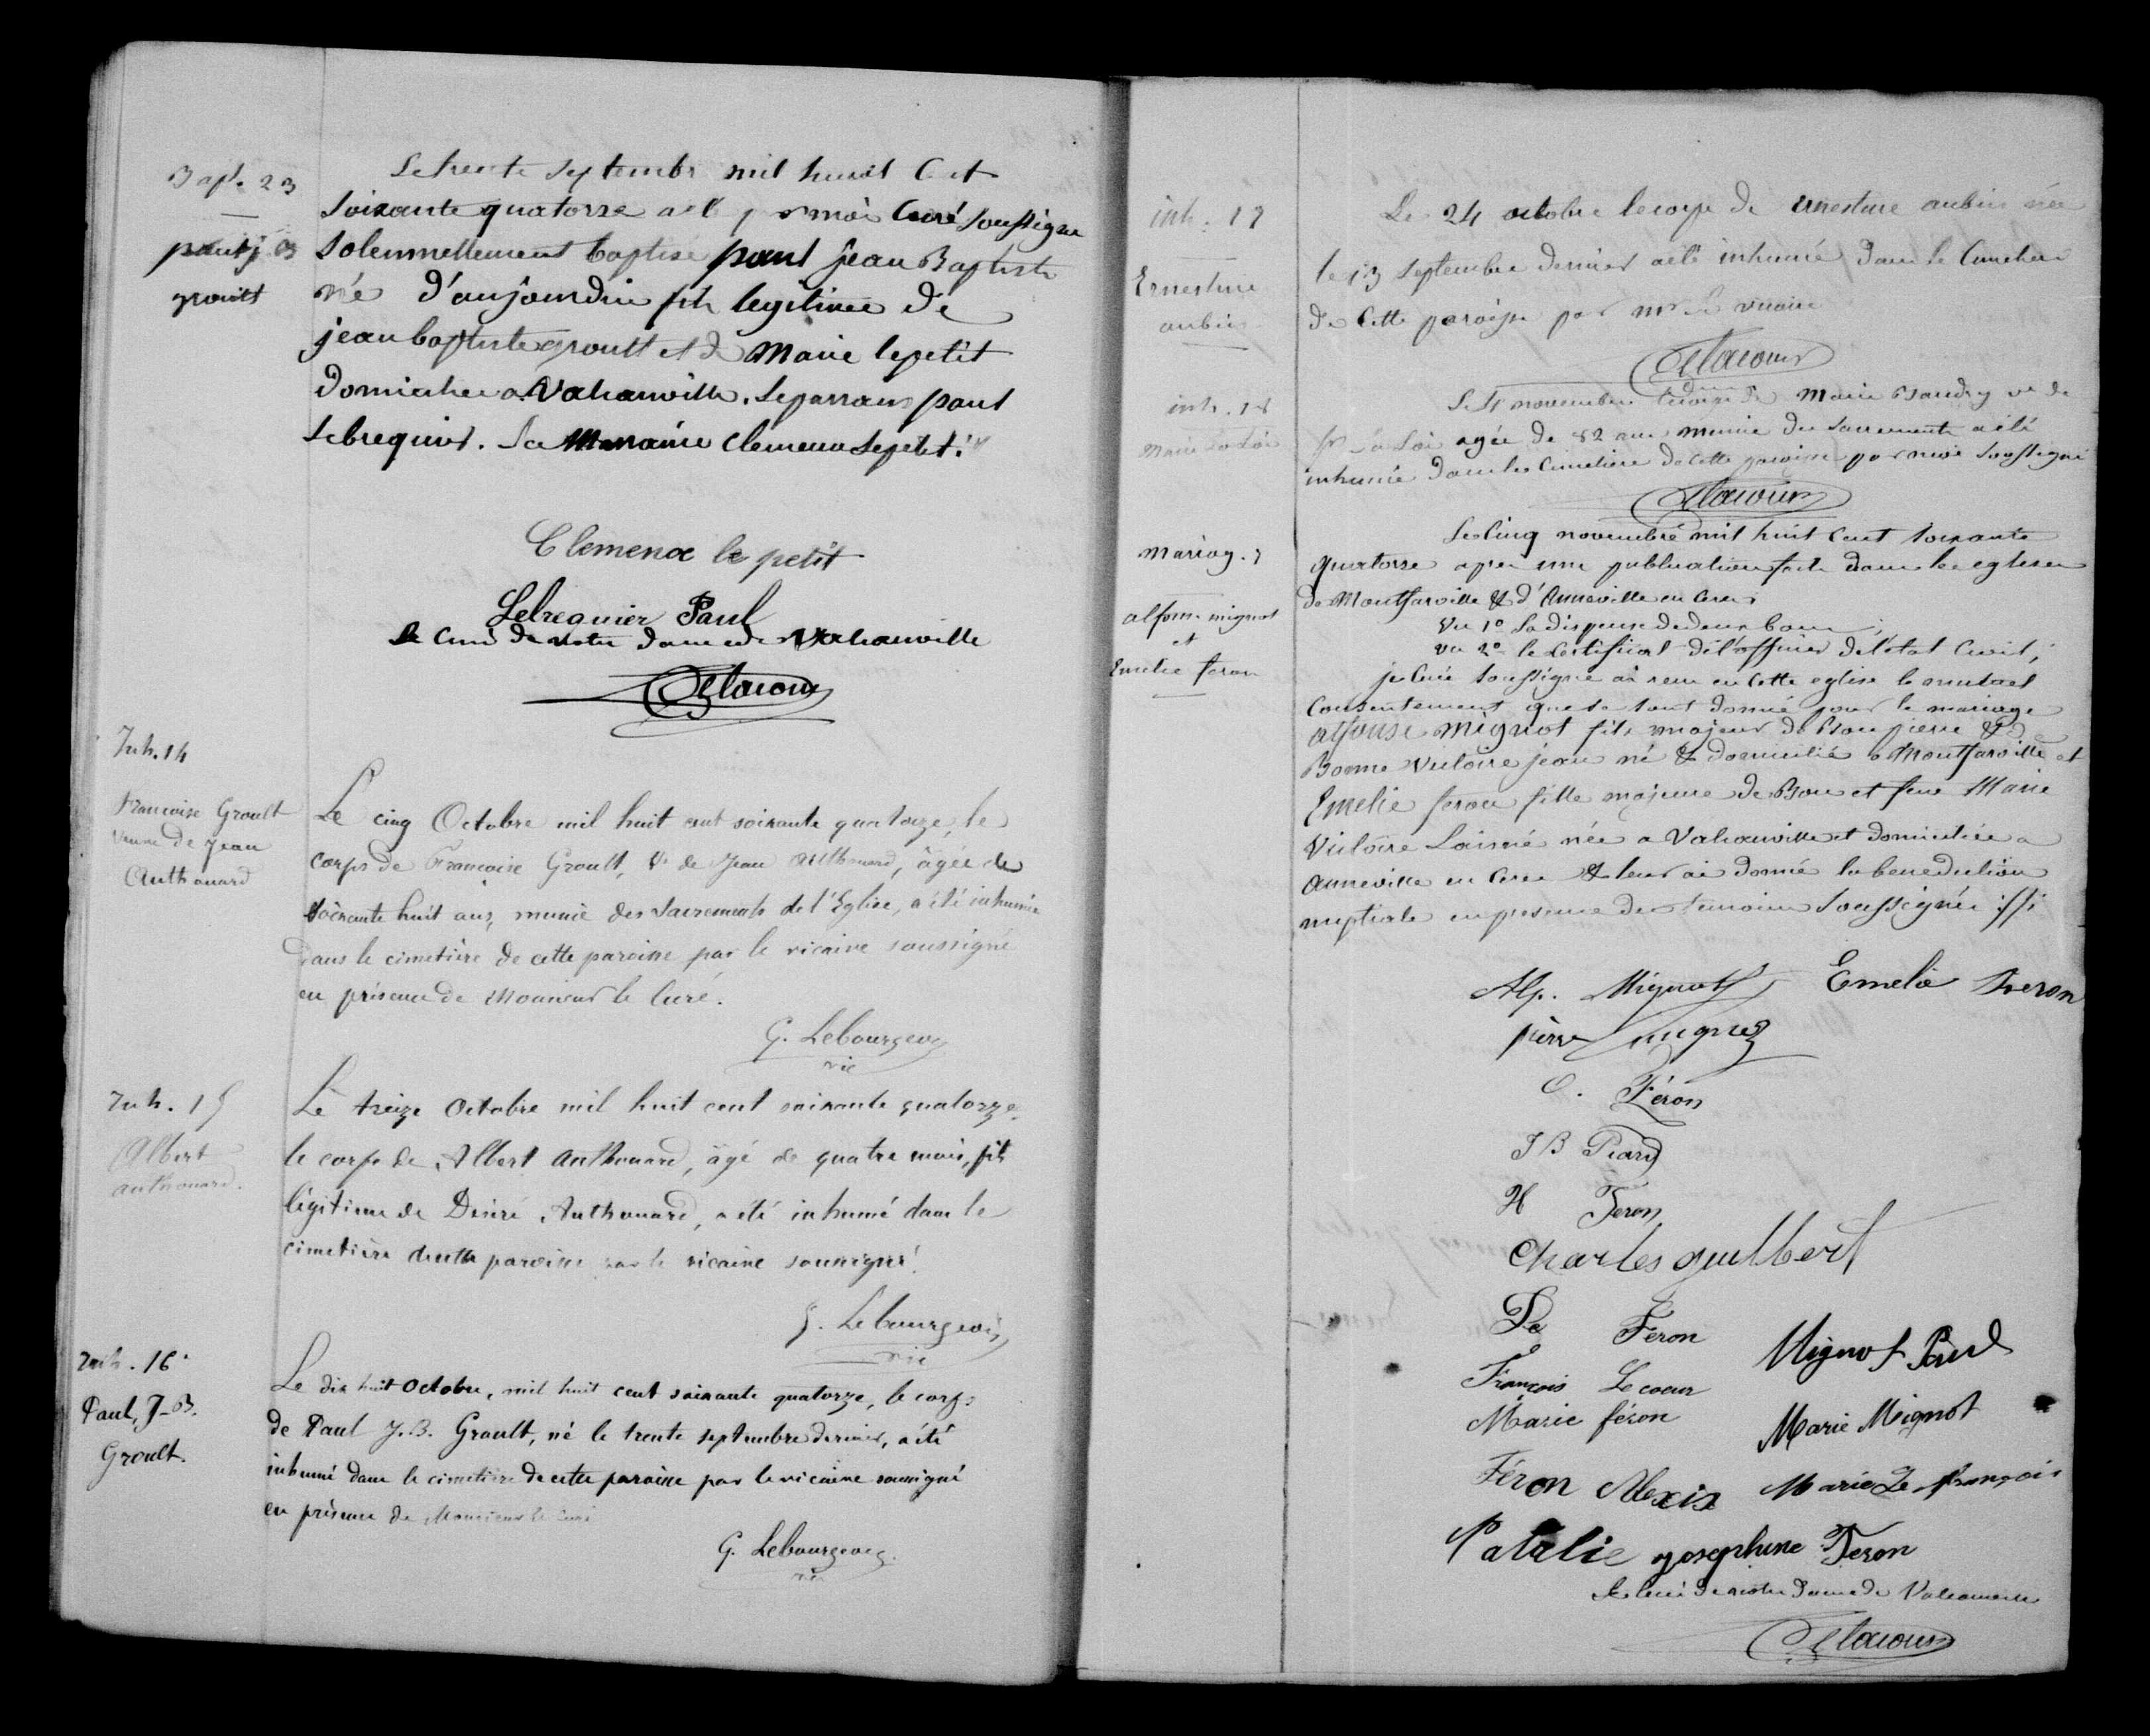 Bapt. 23
paul j. B
groult
Le trente septembre mil huit Cent
soixante quatorze a été par moi Curé soussigné
solemnellement baptisé paul jean Baptiste
né d'aujourdui fils legitime de
jean baptiste groult et de Marie lepetit
domiciliés a Valcanville. Le parrain paul
Lebrequier. La Marraine Clemence Lepetit.
Clemence le petit
Lebrequier Paul
Le Curé de notre dame de Valcanville
Delacour
Inh. 14
Francoise Groult
veuve de Jean
Anthouard
Le cinq Octobre mil huit cent soixante quatorze, le
corps de Francoise Groult, Ve de Jean Anthouard, âgée de
soixante huit ans, munie des Sacrements de l'Eglise, a été inhumée
dans le cimetière de cette paroisse par le vicaire soussigné
en présence de Monsieur le Curé.
G. Lebourgeois
vic
Inh. 15
Albert
anthouard.
Le treize Octobre mil huit cent soixante quatorze
le corps de Albert Anthouard, âgé de quatre mois, fils
légitime de Désiré Anthouard, a été inhumé dans le
cimetière de cette paroisse par le vicaire soussigné.
G. Lebourgeois
vic
Inh. 16
Paul, J-B.
Groult.
Le dix huit Octobre, mil huit cent soixante quatorze, le corps
de Paul J.B. Groult, né le trente septembre dernier, a été
inhumé dans le cimetière de cette paroisse par le vicaire soussigné
en présence de Monsieur le Curé
G. Lebourgeois.
vic
inh. 17
Ernestine
aubin
Le 24 octobre le corps de Ernestine aubin née
le 13 septembre dernier a été inhumé dans le Cimetiere
de Cette paroisse par mr le vicaire
Delacour
inh. 18
Marie La Loi
Le 4 novembre le corps de Marie Baudry ve de
La Loi agée de 82 ans munie des sacrements a été
inhumé dans le Cimetiere de cette paroisse par moi soussigné
Delacour
mariag. 7
alfonse mignot
et
Emelie feron
Le Cinq novembre mil huit Cent soixante
quatorze apres une publication faite dans les eglises
de Montfarville & d'Anneville en Cere;
vu 1º La dispense de deux bans;
vu 2º le Certificat de l'officier de l'etat Civil;
je Curé soussigné ai recu en Cette eglise le mutuel
Consentement que se sont donné pour le mariage
alfonse mignot fils majeur de Bon pierre & de
Bonne Victoire jean né & domicilié a Montfarville et
Emelie feron fille majeure de Bon et feue Marie
Victoire Laisné née a Valcanville et domiciliée a
Anneville en Cere & leur ai donné la benediction
nuptiale en presence des temoins soussignés
Alp. Mignot Emelie Feron
pierre mignot
O. Féron
J B Picard
H Feron
Charles Guilbert
Feron
Mignot Paul
François Lecoeur
Marie féron
Marie Mignot
Féron Alexis
Marie Le françois
Natalie josephine Feron
Le Curé de notre Dame de Valcanville
Delacour